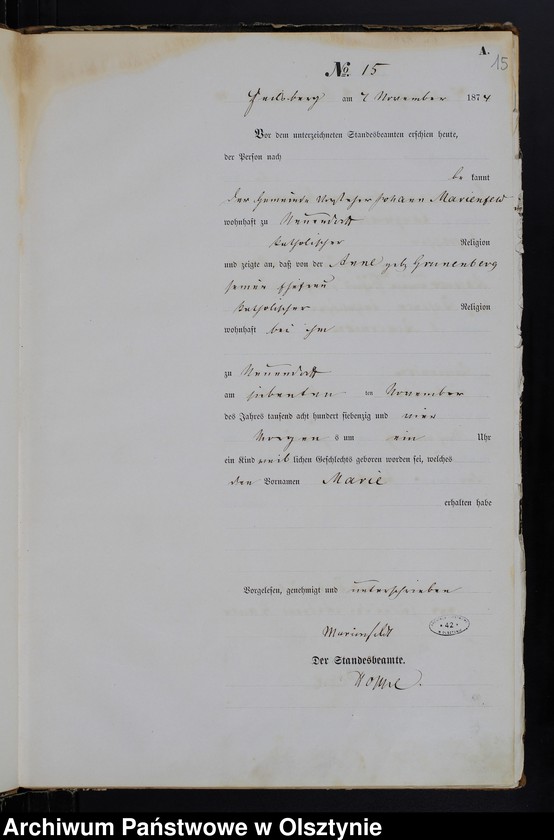 A.
15
No. 15
Heilsberg am 7 November 1874
Vor dem unterzeichneten Standesbeamten erschien heute,
der Person nach
be kannt
der Gemeinde Vorsteher Johann Marienfeld
wohnhaft zu Neuendorff
katholischer Religion
und zeigte an, daß von der Anne geb. Grunenberg
seiner Ehefrau
katholischer Religion
wohnhaft bei ihm
zu Neuendorff
am siebenten ten November
des Jahres tausend acht hundert siebenzig und vier
Morgen s um ein Uhr
ein Kind weib lichen Geschlechts geboren worden sei, welches
den Vornamen Marie
erhalten habe
Vorgelesen, genehmigt und unterschrieben
Marienfeldt
42
Der Standesbeamte.
Hoppe.
Archiwum Państwowe w Olsztynie